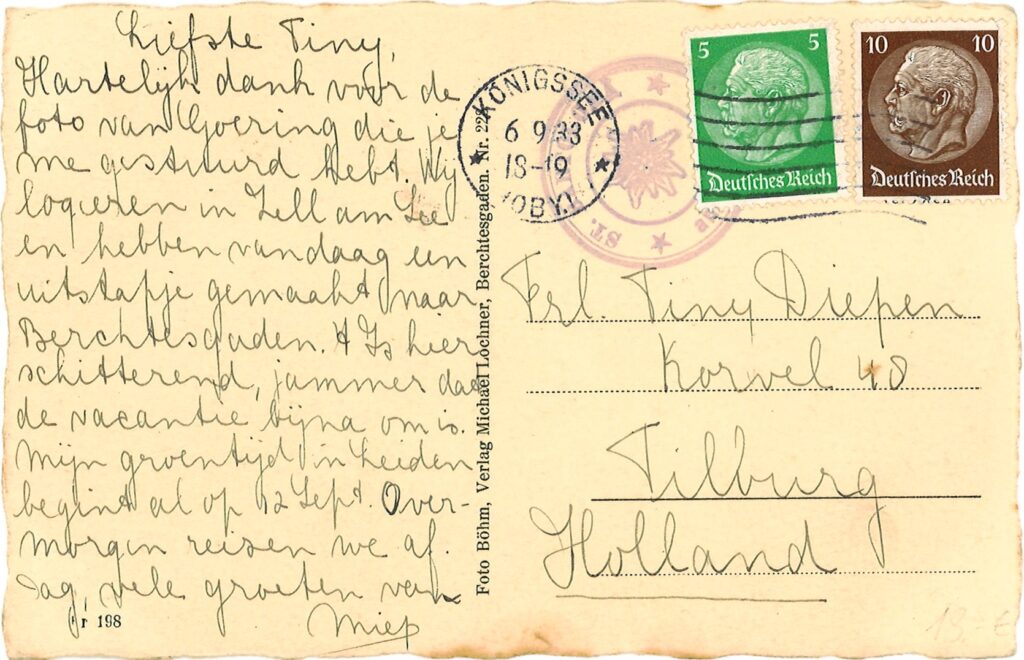 Liefste Tiny,
Hartelijk dank voor de
foto van Goering die je
me gestuurd hebt. Wij
logeren in Zell am See
en hebben vandaag een
uitstapje gemaakt naar
Berchtesgaden. 't Is hier
schitterend, jammer dat
de vacantie bijna om is.
Mijn groentijd in Leiden
begint al op 12 Sept. Over-
morgen reisen we af.
Dag, vele groeten van
Miep
Nr 198
Foto Böhm, Verlag Michael Lochner, Berchtesgaden. Nr. 228
KÖNIGSSEE
6 9 33
18-19
(OBY.)
ST.
5 5
Deutsches Reich
10 10
Deutsches Reich
Frl. Tiny Diepen
Korvel 48
Tilburg
Holland
13.- €